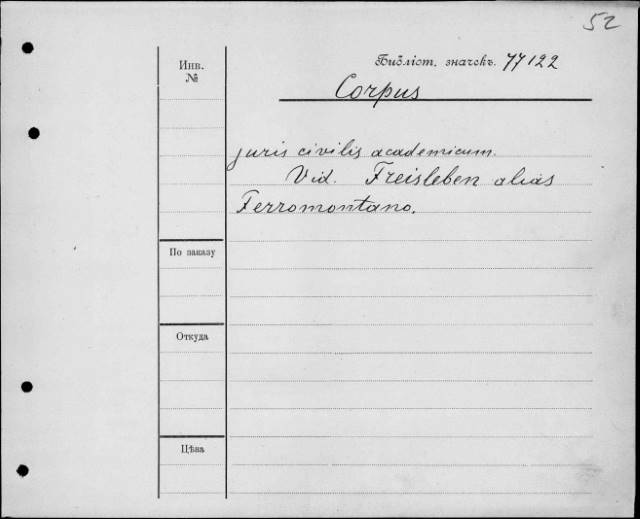 52
Инв.
№
Библіот. значекъ. 77122
Corpus
juris civilis academicum.
Vid. Freisleben alias
Ferromontano.
По заказу
Откуда
Цѣна